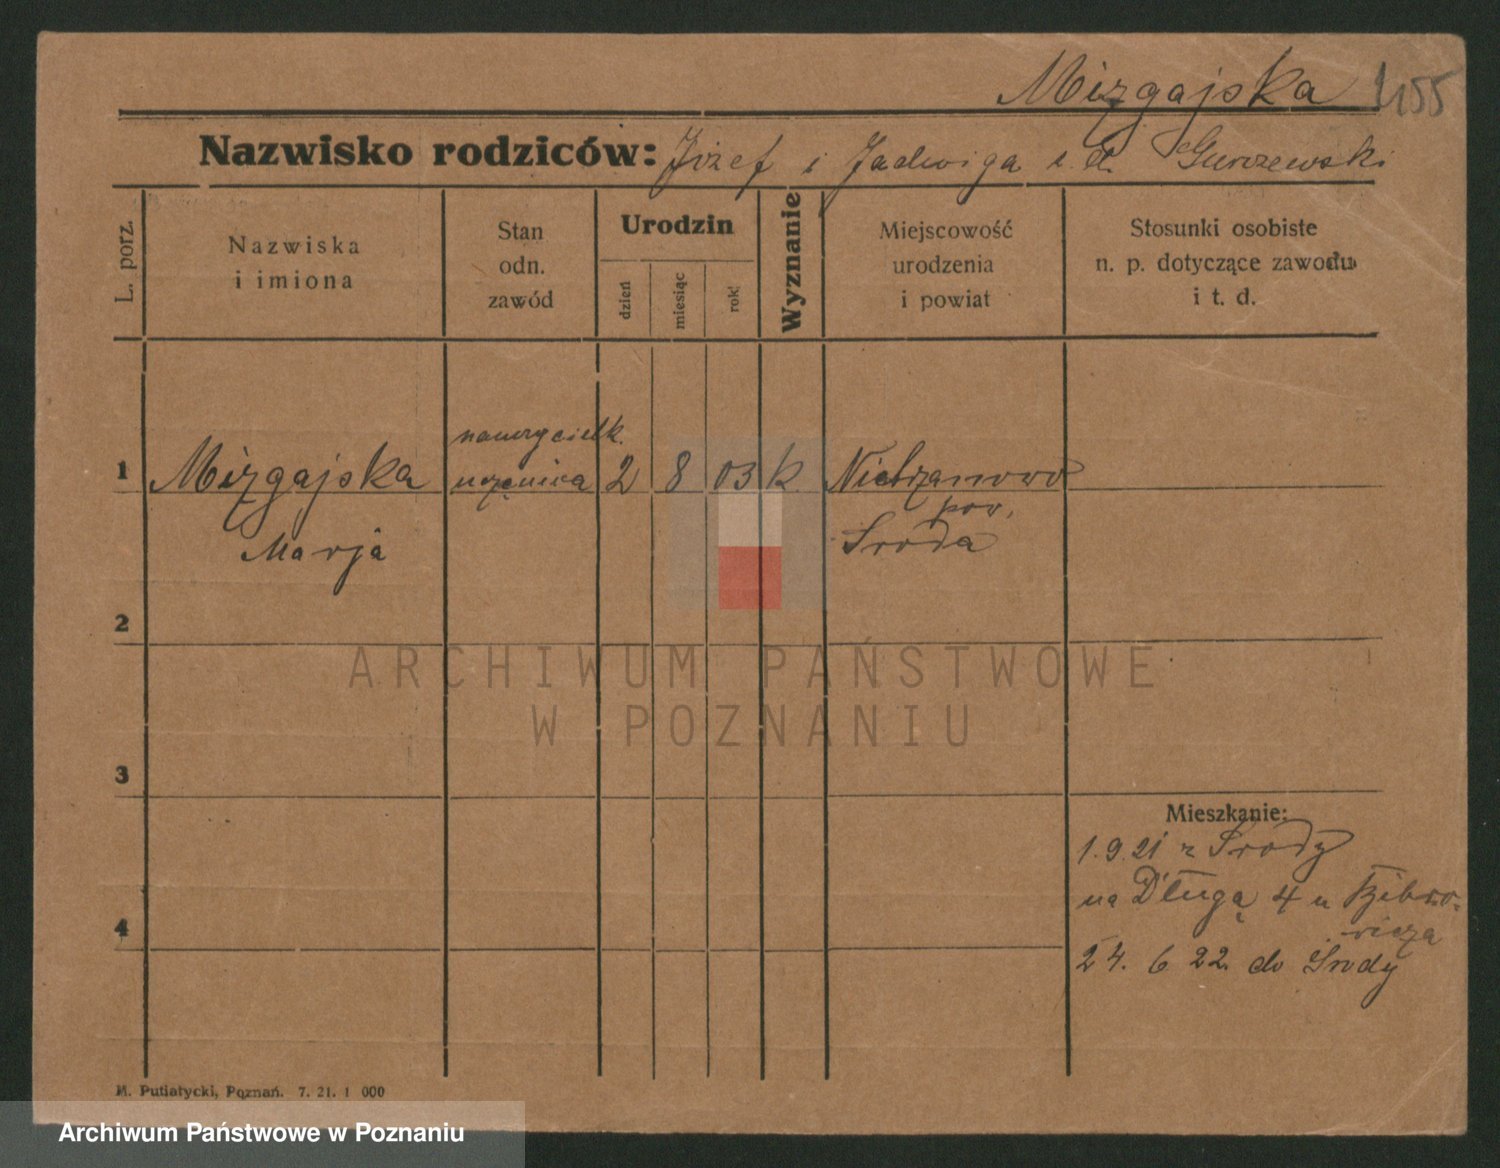 Mizgajska 1155
Nazwisko rodziców: Józef i Jadwiga z d. Gurzewski
L. porz.
Nazwiska
i imiona
Stan
odn.
zawód
Urodzin
dzień
miesiąc
rok
Wyznanie
Miejscowość
urodzenia
i powiat
Stosunki osobiste
n. p. dotyczące zawodu
i t. d.
nauczycielk.
1 Mizgajska uczenica 2 8 03 k Nietrzanowo
pow.
Marja Środa
2
ARCHIWUM PAŃSTWOWE
W POZNANIU
3
Mieszkanie:
1.9.21 z Środy
na Długą 4 u
4
24. 6 22. do Środy
M. Putiatycki, Poznań. 7. 21. 1 000
Archiwum Państwowe w Poznaniu